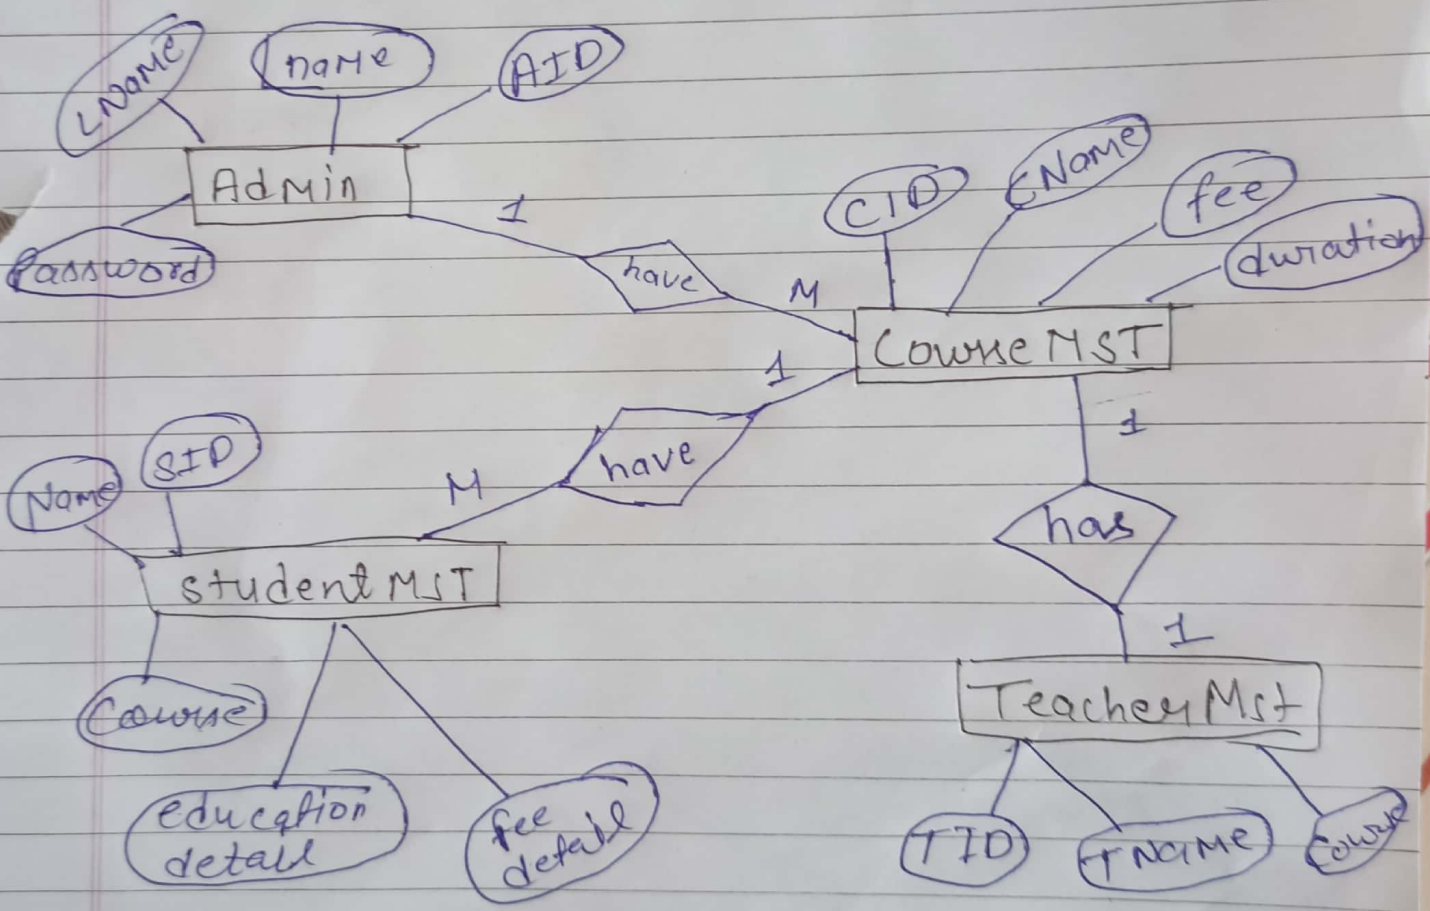 LName
name
AID
Admin
Password
1
have
M
CID
CName
fee
duration
CourseMST
1
have
M
1
has
1
Name
SID
studentMST
Course
education
detail
fee
detail
TeacherMst
TID
TName
Course